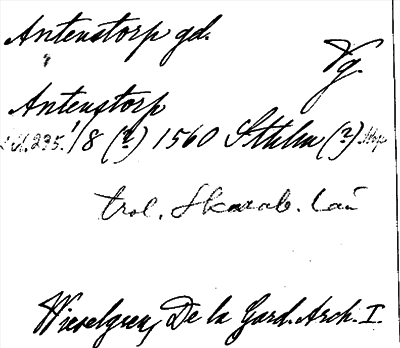 Antenstorp gd.
"
Vg.
Antenstorp
235. 1/8 (?) 1560 Sthlm (?)
trol. Skarab. län
Wieselgren, De la Gard. Arch. I.